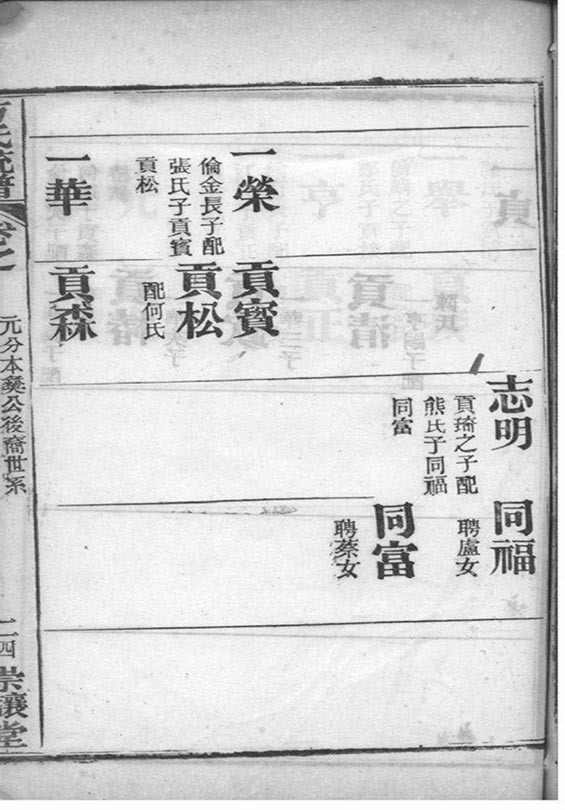 志明
貢琦之子配
熊氏子同福
同富
同福
聘盧女
同富
聘蔡女
一榮
倫金長子配
張氏子貢寶
貢松
貢寶
貢松
配何氏
一華
貢森
氏統譜
元分本燮公後裔世系
二四
崇讓堂